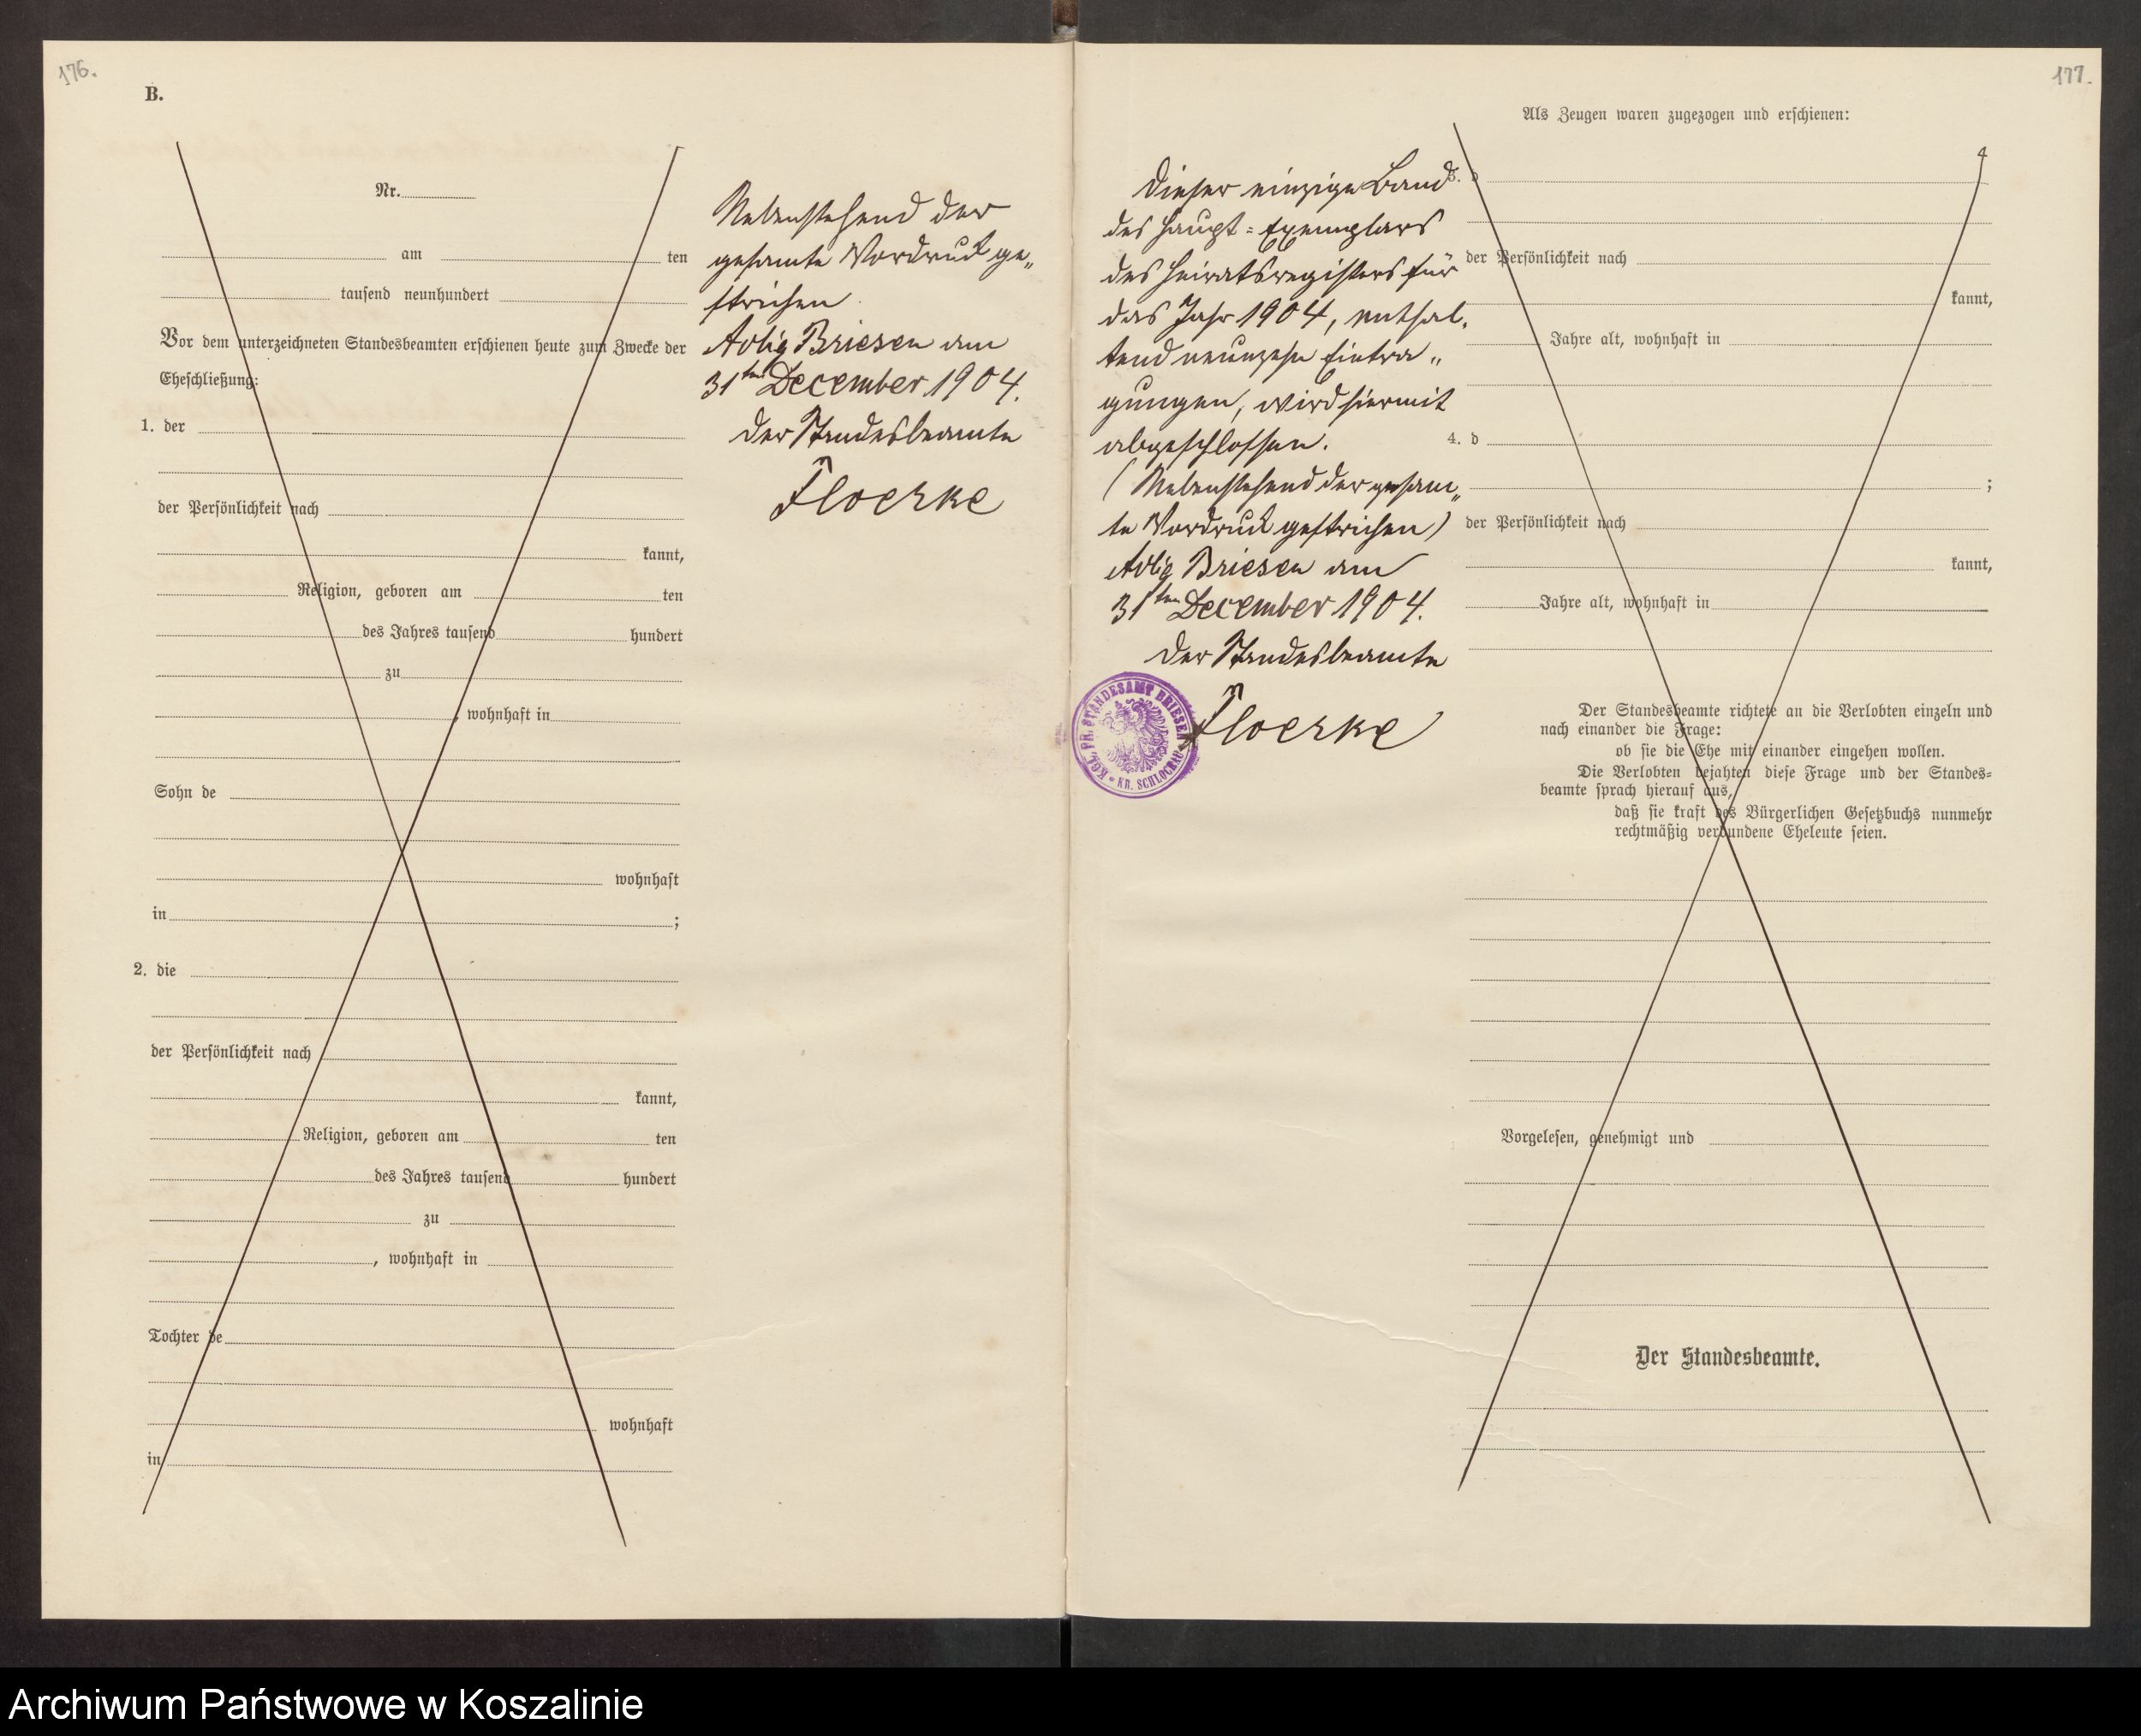 176.
B.
Nr.
am ten
tausend neunhundert
Vor dem unterzeichneten Standesbeamten erschienen heute zum Zwecke der
Eheschließung:
1. der
der Persönlichkeit nach
kannt,
Religion, geboren am ten
des Jahres tausend hundert
zu
, wohnhaft in
Sohn de
wohnhaft
in ;
2. die
der Persönlichkeit nach
kannt,
Religion, geboren am ten
des Jahres tausend hundert
zu
, wohnhaft in
Tochter de
wohnhaft
in
Nebenstehend der
gesamte Vordruck ge„
strichen
Adlig Briesen am
31ten December 1904.
Der Standesbeamte
Floerke
177.
Dieser einzige Band
des Haupt=Exemplars
des Heiratsregisters für
das Jahr 1904, enthal„
tend neunzehn Eintra„
gungen, wird hiermit
abgeschlossen.
(Nebenstehend der gesam„
te Vordruck gestrichen)
Adlig Briesen am
31ten December 1904.
Der Standesbeamte
Floerke
KGL. PR. STANDESAMT BRIESEN
KR. SCHLOCHAU
Als Zeugen waren zugezogen und erschienen:
3. d
der Persönlichkeit nach
kannt,
Jahre alt, wohnhaft in
4. d
;
der Persönlichkeit nach
kannt,
Jahre alt, wohnhaft in
Der Standesbeamte richtete an die Verlobten einzeln und
nach einander die Frage:
ob sie die Ehe mit einander eingehen wollen.
Die Verlobten bejahten diese Frage und der Standes=
beamte sprach hierauf aus,
daß sie kraft des Bürgerlichen Gesetzbuchs nunmehr
rechtmäßig verbundene Eheleute seien.
Vorgelesen, genehmigt und
Der Standesbeamte.
Archiwum Państwowe w Koszalinie